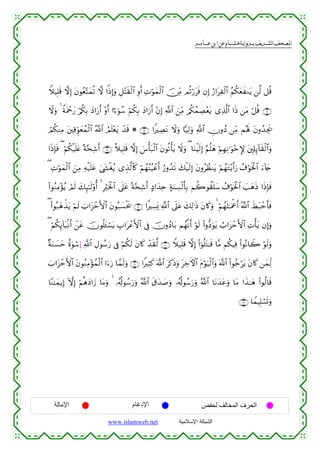 المصحف الشريف برواية هشام عن ابن عامر
قُل لَّن يَنفَعَكُمُ ٱلْفِرَارُ إِن فَرَرْتُم مِّنَ ٱلْمَوْتِ أَوِ ٱلْقَتْلِ وَإِذًا لَّا تُمَتَّعُونَ إِلَّا قَلِيلًا
۝ قُلْ مَن ذَا ٱلَّذِى يَعْصِمُكُم مِّنَ ٱللَّهِ إِنْ أَرَادَ بِكُمْ سُوٓءًا أَوْ أَرَادَ بِكُمْ رَحْمَةً ۚ وَلَا
يَجِدُونَ لَهُم مِّن دُونِ ٱللَّهِ وَلِيًّا وَلَا نَصِيرًا ۝ * قَدْ يَعْلَمُ ٱللَّهُ ٱلْمُعَوِّقِينَ مِنكُمْ
وَٱلْقَآئِلِينَ لِإِخْوَٰنِهِمْ هَلُمَّ إِلَيْنَا ۖ وَلَا يَأْتُونَ ٱلْبَأْسَ إِلَّا قَلِيلًا ۝ أَشِحَّةً عَلَيْكُمْ ۖ فَإِذَا
جَآءَ ٱلْخَوْفُ رَأَيْتَهُمْ يَنظُرُونَ إِلَيْكَ تَدُورُ أَعْيُنُهُمْ كَٱلَّذِى يُغْشَىٰ عَلَيْهِ مِنَ ٱلْمَوْتِ ۖ
فَإِذَا ذَهَبَ ٱلْخَوْفُ سَلَقُوكُم بِأَلْسِنَةٍ حِدَادٍ أَشِحَّةً عَلَى ٱلْخَيْرِ ۚ أُوْلَٰٓئِكَ لَمْ يُؤْمِنُوا۟
فَأَحْبَطَ ٱللَّهُ أَعْمَٰلَهُمْ ۚ وَكَانَ ذَٰلِكَ عَلَى ٱللَّهِ يَسِيرًا ۝ يَحْسَبُونَ ٱلْأَحْزَابَ لَمْ يَذْهَبُوا۟ ۖ
وَإِن يَأْتِ ٱلْأَحْزَابُ يَوَدُّوا۟ لَوْ أَنَّهُم بَادُونَ فِى ٱلْأَعْرَابِ يَسْـَٔلُونَ عَنْ أَنۢبَآئِكُمْ ۖ
وَلَوْ كَانُوا۟ فِيكُم مَّا قَٰتَلُوٓا۟ إِلَّا قَلِيلًا ۝ لَّقَدْ كَانَ لَكُمْ فِى رَسُولِ ٱللَّهِ إِسْوَةٌ حَسَنَةٌ
لِّمَن كَانَ يَرْجُوا۟ ٱللَّهَ وَٱلْيَوْمَ ٱلْءَاخِرَ وَذَكَرَ ٱللَّهَ كَثِيرًا ۝ وَلَمَّا رَءَا ٱلْمُؤْمِنُونَ ٱلْأَحْزَابَ
قَالُوا۟ هَٰذَا مَا وَعَدَنَا ٱللَّهُ وَرَسُولُهُۥ وَصَدَقَ ٱللَّهُ وَرَسُولُهُۥ ۚ وَمَا زَادَهُمْ إِلَّآ إِيمَٰنًا
وَتَسْلِيمًا ۝
الحرف المخالف لحفص الإدغام الإمالة
الشبكة الإسلامية www.islamweb.net